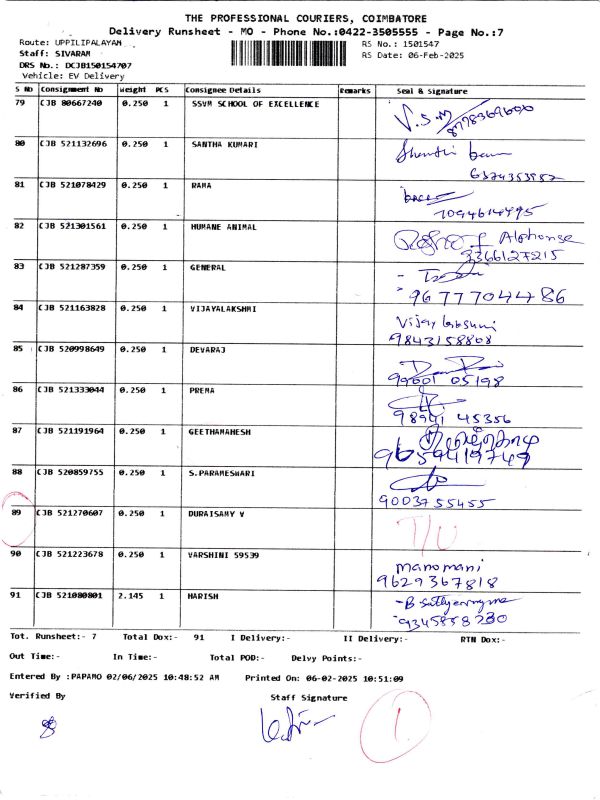 THE PROFESSIONAL COURIERS, COIMBATORE
Delivery Runsheet - MO - Phone No.:0422-3505555 - Page No.:7
Route: UPPILIPALAYAM
RS No.: 1501547
Staff: SIVARAM
RS Date: 06-Feb-2025
DRS No.: DCJB150154707
Vehicle: EV Delivery
S No Consignment No Weight PCS Consignee Details Remarks Seal & Signature
79 CJB 80667240 0.250 1 SSVM SCHOOL OF EXCELLENCE V.S.M
80 CJB 521132696 0.250 1 SANTHA KUMARI
6374353952
81 CJB 521078429 0.250 1 RAMA
7094614495
82 CJB 521301561 0.250 1 HUMANE ANIMAL Alphonse
9366127215
83 CJB 521287359 0.250 1 GENERAL
9677704486
84 CJB 521163828 0.250 1 VIJAYALAKSHMI
9843158808
85 CJB 520998649 0.250 1 DEVARAJ
05198
86 CJB 521333044 0.250 1 PREMA
98941 45356
87 CJB 521191964 0.250 1 GEETHAMAHESH
9659419749
88 CJB 520859755 0.250 1 S.PARAMESWARI
9003755455
89 CJB 521270607 0.250 1 DURAISAMY V T/U
90 CJB 521223678 0.250 1 VARSHINI 59539 manomani
9629367818
91 CJB 521080801 2.145 1 HARISH
9345858230
Tot. Runsheet:- 7 Total Dox:- 91 I Delivery:- II Delivery:- RTN Dox:-
Out Time:- In Time:- Total POD:- Delvy Points:-
Entered By :PAPAMO 02/06/2025 10:48:52 AM Printed On: 06-02-2025 10:51:09
Verified By Staff Signature
1